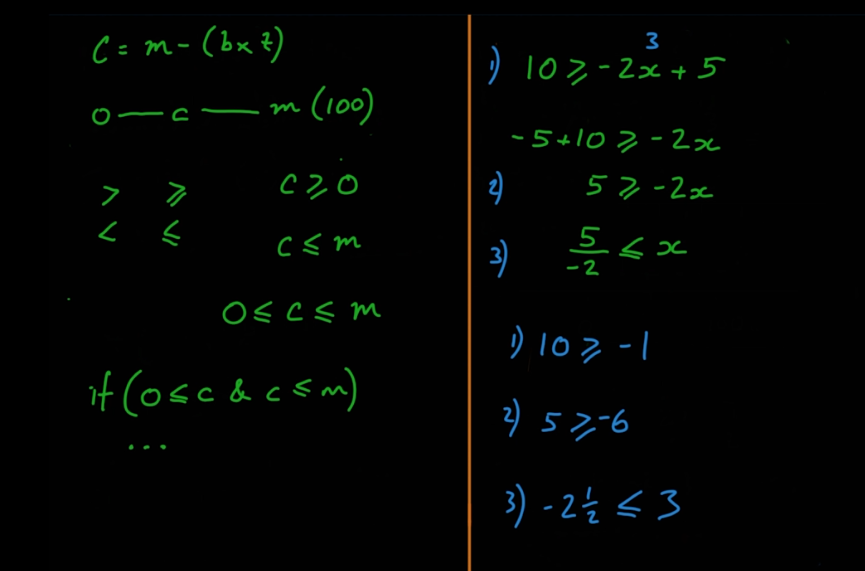 C = m - (b x t)
0 — c — m (100)
> ⩾
< ⩽
c ⩾ 0
c ⩽ m
0 ⩽ c ⩽ m
if (0 ⩽ c & c ⩽ m)
...
3
1) 10 ⩾ -2x + 5
-5+10 ⩾ -2x
2) 5 ⩾ -2x
3) 5/-2 ⩽ x
1) 10 ⩾ -1
2) 5 ⩾ -6
3) -2 1/2 ⩽ 3